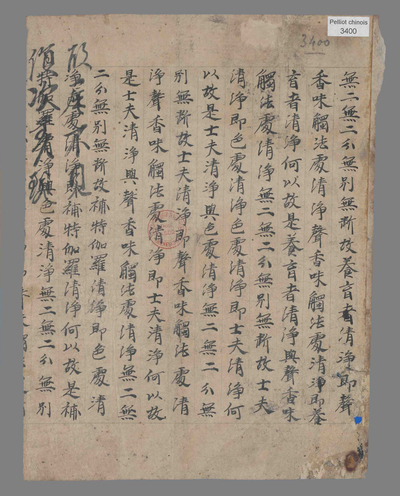 Pelliot chinois
3400
3400
無二無二分無別無斷故養育者清淨即聲
香味觸法處清淨聲香味觸法處清淨即養
育者清淨何以故是養育者清淨與聲香味
觸法處清淨無二無二分無別無斷故士夫
清淨即色處清淨色處清淨即士夫清淨何
以故是士夫清淨與色處清淨無二無二分無
別無斷故士夫清淨即聲香味觸法處清
淨聲香味觸法處清淨即士夫清淨何以故
是士夫清淨與聲香味觸法處清淨無二無
二分無別無斷故補特伽羅清淨即色處清
淨色處清淨即補特伽羅清淨何以故是補
特伽羅清淨與色處清淨無二無二分無別